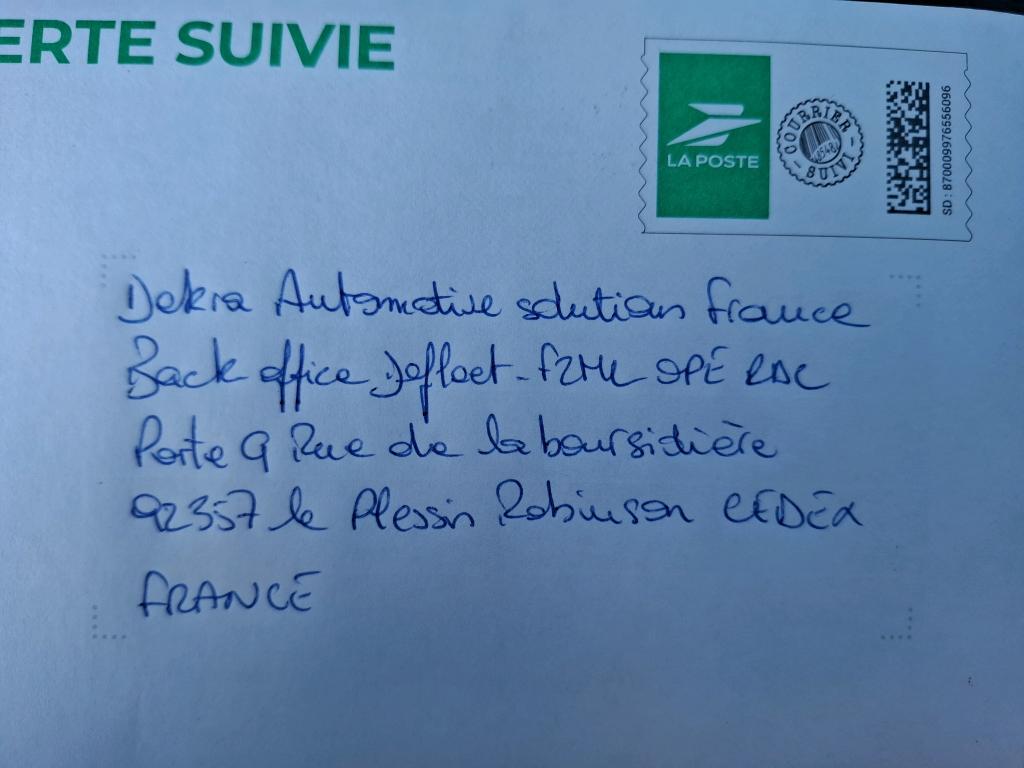 ERTE SUIVIE
LA POSTE
COURRIER
SUIVI
SD : 870009976556096
Dekra Automotive solution france
Back office Defleet - f2ML OPÉ RDC
Porte 9 Rue de la boursidière
92357 le Plessis Robinson CEDEX
FRANCE